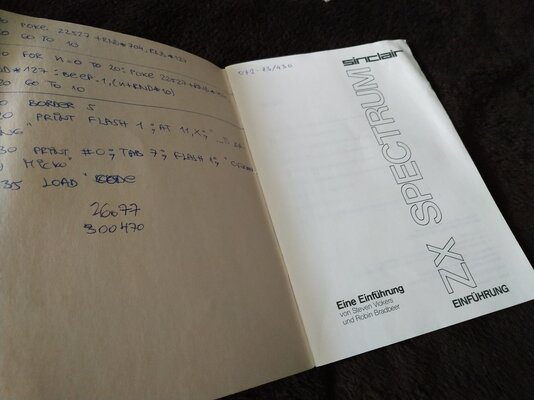 POKE 22527 + RND*704, RND*127
GO TO 10
FOR N=0 TO 20: POKE 22527+RND
RND*127: BEEP.1,(N+RND*10)
20 GO TO 10
10 BORDER 5
20 PRINT FLASH 1; AT 11,X;"
30 PRINT #0; TAB 7; FLASH 1;"
MICKO"
35 LOAD " CODE
26077
300470
072-73/430
sinclair
ZX SPECTRUM
EINFÜHRUNG
Eine Einführung
von Steven Vickers
und Robin Bradbeer